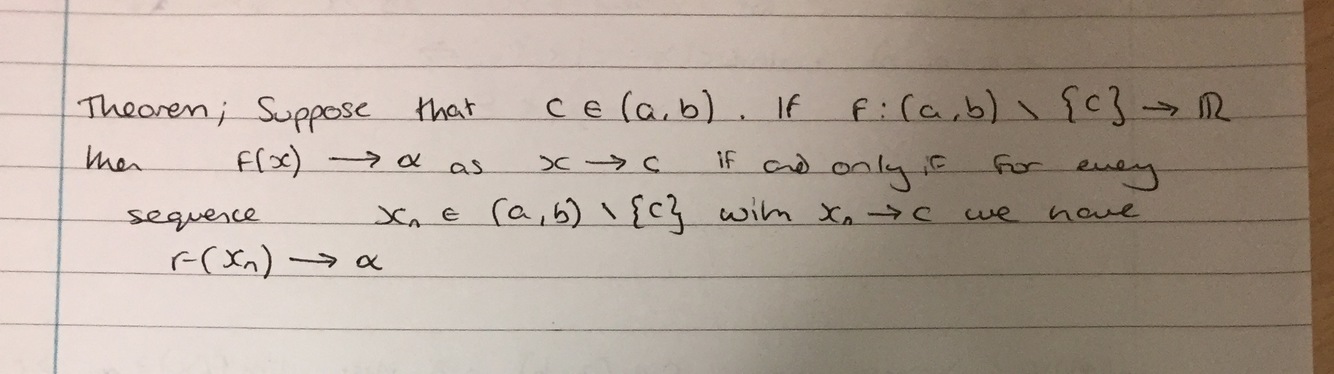 Theorem; Suppose that c ∈ (a,b). If f:(a,b) \ {c} → ℝ
then f(x) → α as x → c if and only if for every
sequence xₙ ∈ (a,b) \ {c} with xₙ → c we have
f(xₙ) → α